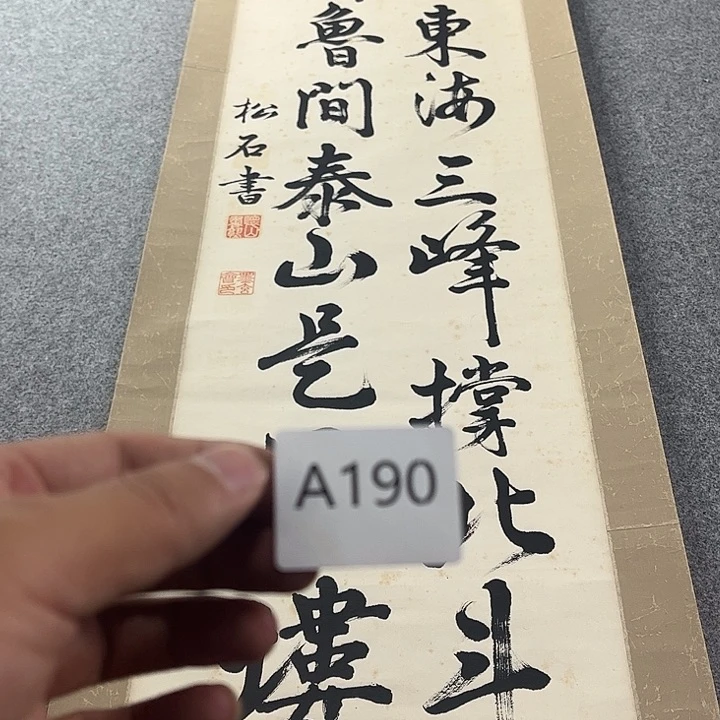 東海三峰撐北斗
魯間泰山是
塿
松石書
A190